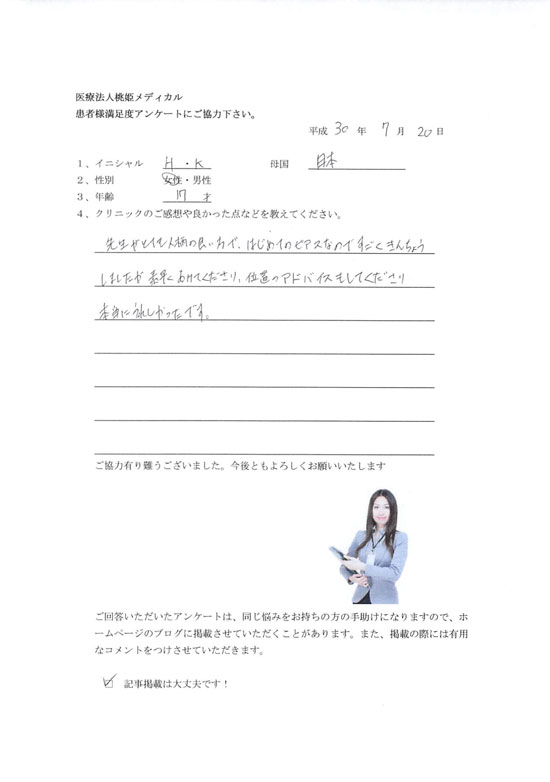 医療法人桃姫メディカル
患者様満足度アンケートにご協力下さい。
平成 30 年 7 月 20 日
1、イニシャル H・K 母国 日本
2、性別 女性・男性
3、年齢 17 才
4、クリニックのご感想や良かった点などを教えてください。
先生がとても人柄の良い方で、はじめてのピアスなのですごくきんちょう
しましたが素早くあけてくださり、位置のアドバイスもしてくださり
本当にうれしかったです。
ご協力有り難うございました。今後ともよろしくお願いいたします
ご回答いただいたアンケートは、同じ悩みをお持ちの方の手助けになりますので、ホ
ームページのブログに掲載させていただくことがあります。また、掲載の際には有用
なコメントをつけさせていただきます。
☑ 記事掲載は大丈夫です！